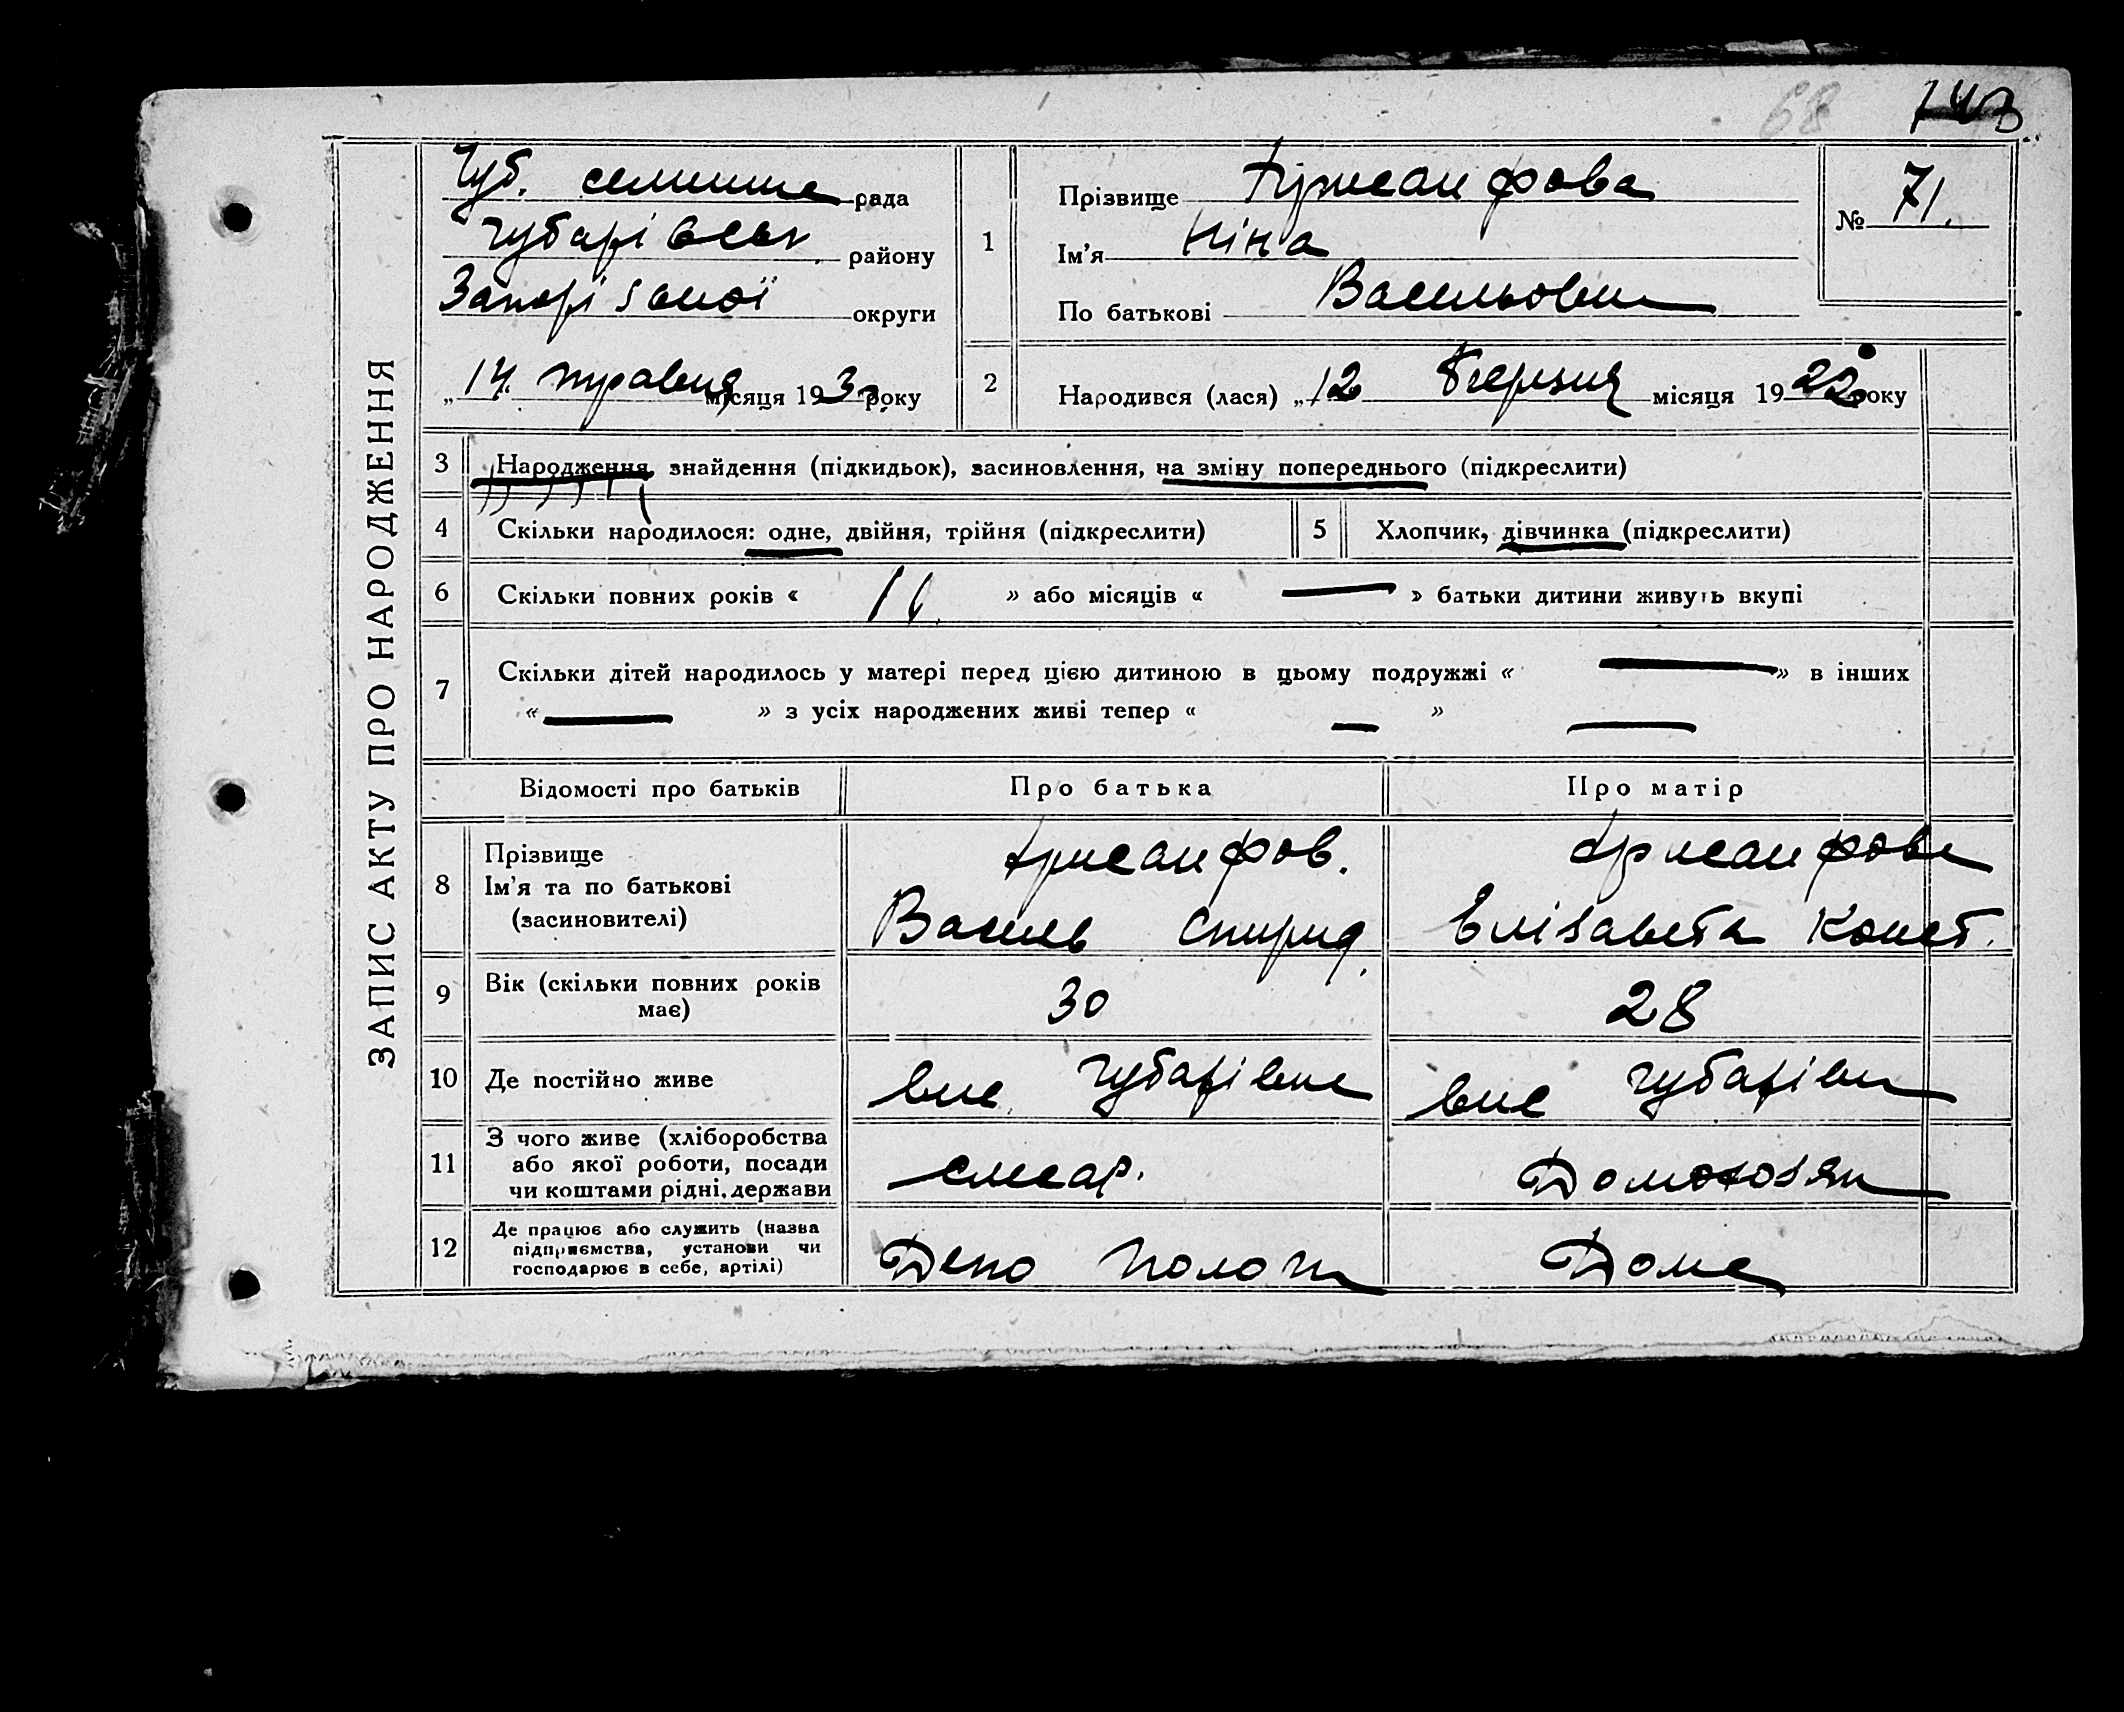 68 143
ЗАПИС АКТУ ПРО НАРОДЖЕННЯ
Чуб. селищне рада
Чубарівськ району
Запорізької округи
„14" травня місяця 193 року
1
Прізвище Хрисанфова
Ім'я Ніна
По батькові Васильовн
№ 71.
2
Народився (лася) „12 березня місяця 1922 року
3 Народження, знайдення (підкидьок), засиновлення, на зміну попереднього (підкреслити)
4 Скільки народилося: одне, двійня, трійня (підкреслити) 5 Хлопчик, дівчинка (підкреслити)
6 Скільки повних років « 11. » або місяців « — » батьки дитини живуть вкупі
7 Скільки дітей народилось у матері перед цією дитиною в цьому подружжі « — » в інших
« — » з усіх народжених живі тепер « — » —
Відомості про батьків Про батька Про матір
8 Прізвище Хрисанфов. Хрисанфова
Ім'я та по батькові
(засиновителі) Василь Спирид. Елізавета Конст.
9 Вік (скільки повних років має) 30 28
10 Де постійно живе вис. Чубарівці вис Чубарівці
11 З чого живе (хліборобства
або якої роботи, посади
чи коштами рідні, держави слюсар. Домохозяй
12 Де працює або служить (назва
підприємства, установи чи
господарює в себе, артілі) Депо Пологи Дома